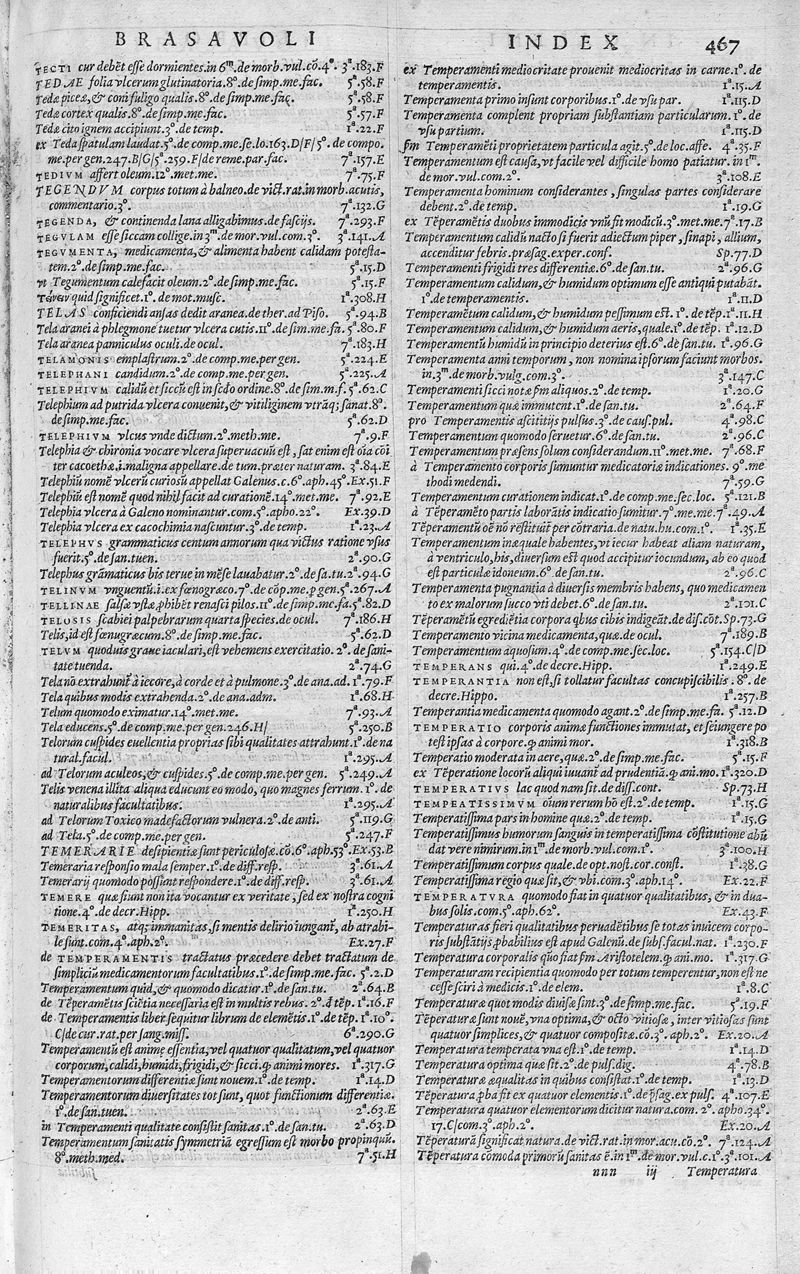 BRASAVOLI INDEX 467
TECTI cur debēt esse dormientes.in 6ᵐ.de morb.vul.cō.4°. 3ª.183.F
TEDAE folia vlcerum glutinatoria.8°.de simp.me.fac. 5ª.58.F
Tedæ piceæ,& coni fuligo qualis.8°.de simp.me.fac. 5ª.58.F
Tedæ cortex qualis.8°.de simp.me.fac. 5ª.57.F
Tedæ cito ignem accipiunt.3°.de temp. 1ª.22.F
ex Teda spatulam laudat.5°.de comp.me.se.lo.163.D/F/5°.de compo.
me.per gen.247.B/G/5ª.259.F/de reme.par.fac. 7ª.157.E
TEDIVM affert oleum.12°.met.me. 7ª.75.F
TEGENDVM corpus totum à balneo.de vict.rat.in morb.acutis,
commentario.3°. 7ª.132.G
TEGENDA, & continenda lana alligabimus.de fascijs. 7ª.293.F
TEGVLAM esse siccam collige.in 3ᵐ.de mor.vul.com.3°. 3ª.141.A
TEGVMENTA, medicamenta,& alimenta habent calidam potesta-
tem.2°.de simp.me.fac. 5ª.15.D
vt Tegumentum calefacit oleum.2°.de simp.me.fac. 5ª.15.F
quid significet.1°.de mot.musc. 1ª.308.H
TELAS conficiendi ansas dedit aranea.de ther.ad Piso. 5ª.94.B
Tela aranei à phlegmone tuetur vlcera cutis.11°.de sim.me.fa.5ª.80.F
Tela aranea panniculus oculi.de ocul. 7ª.183.H
TELAMONIS emplastrum.2°.de comp.me.per gen. 5ª.224.E
TELEPHANI candidum.2°.de comp.me.per gen. 5ª.225.A
TELEPHIVM calidū et siccū est in scdo ordine.8°.de sim.m.f.5ª.62.C
Telephium ad putrida vlcera conuenit,& vitiliginem vtrāq; sanat.8°.
de simp.me.fac. 5ª.62.D
TELEPHIVM vlcus vnde dictum.2°.meth.me. 7ª.9.F
Telephia & chironia vocare vlcera superuacuū est , sat enim est oīa cōi
ter cacoethæ.i.maligna appellare.de tum.præter naturam. 3ª.84.E
Telephiū nomē vlcerū curiosū appellat Galenus.c.6°.aph.45°.Ex.51.F
Telephiū est nomē quod nihil facit ad curationē.14°.met.me. 7ª.92.E
Telephia vlcera à Galeno nominantur.com.5°.apho.22°. Ex.39.D
Telephia vlcera ex cacochimia nascuntur.3°.de temp. 1ª.23.A
TELEPHVS grammaticus centum annorum qua victus ratione vsus
fuerit.5°.de san.tuen. 2ª.90.G
Telephus grāmaticus bis terue in mēse lauabatur.2°.de sa.tu.2ª.94.G
TELINVM vnguentū.i.ex fœnogræco.7°.de cōp.me.p gen.5ª.267.A
TELLINAE salsæ vstæ,phibēt renasci pilos.11°.de simp.me.fa.5ª.82.D
TELOSIS scabiei palpebrarum quarta species.de ocul. 7ª.186.H
Telis,id est fœnugræcum.8°.de simp.me.fac. 5ª.62.D
TELVM quoduis graue iaculari,est vehemens exercitatio. 2°.de sani-
tate tuenda. 2ª.74.G
Tela nō extrahunt̄ à iecore,à corde et à pulmone.3°.de ana.ad.1ª.79.F
Tela quibus modis extrahenda.2°.de ana.adm. 1ª.68.H
Telum quomodo eximatur.14°.met.me. 7ª.93.A
Tela educens.5°.de comp.me.per gen.246.H/ 5ª.250.B
Telorum cuspides euellentia proprias sibi qualitates attrahunt.1°.de na
tural.facul. 1ª.295.A
ad Telorum aculeos,& cuspides.5°.de comp.me.per gen. 5ª.249.A
Telis venena illita aliqua educunt eo modo, quo magnes ferrum. 1°.de
naturalibus facultatibus. 1ª.295.A
ad Telorum Toxico madefactorum vulnera.2°.de anti. 5ª.119.G
ad Tela.5°.de comp.me.per gen. 5ª.247.F
TEMERARIE desipientiæ sunt periculosæ.cō.6°.aph.53°.Ex.53.B
Temeraria responsio mala semper.1°.de diff.resp. 3ª.61.A
Temerarij quomodo possunt respondere.1°.de diff.resp. 3ª.61.A
TEMERE quæ siunt non ita vocantur ex veritate , sed ex nostra cogni
tione.4°.de decr.Hipp. 1ª.250.H
TEMERITAS, atq; immanitas, si mentis delirio iungant̄, ab atrabi-
le sunt.com.4°.aph.2°. Ex.27.F
de TEMPERAMENTIS tractatus præcedere debet tractatum de
simpliciū medicamentorum facultatibus.1°.de simp.me.fac. 5ª.2.D
Temperamentum quid,& quomodo dicatur.1°.de san.tu. 2ª.64.B
de Tēperamētis sciētia necessaria est in multis rebus. 2°.d tēp.1ª.16.F
de Temperamentis liber sequitur librum de elemētis.1°.de tēp. 1ª.10°.
C/de cur.rat.per sang.miss. 6ª.290.G
Temperamentū est animę essentia,vel quatuor qualitatum,vel quatuor
corporum,calidi,humidi,frigidi,& sicci.q̄ animi mores. 1ª.317.G
Temperamentorum differentiæ sunt nouem.1°.de temp. 1ª.14.D
Temperamentorum diuersitates tot sunt, quot functionum differentiæ.
1°.de san.tuen. 2ª.63.E
in Temperamenti qualitate consistit sanitas.1°.de san.tu. 2ª.63.D
Temperamentum sanitatis symmetriā egressum est morbo propinquū.
8°.meth.med. 7ª.51.H
ex Temperamenti mediocritate prouenit mediocritas in carne.1°. de
temperamentis. 1ª.15.A
Temperamenta primo insunt corporibus.1°.de vsu par. 1ª.115.D
Temperamenta complent propriam substantiam particularum. 1°.de
vsu partium. 1ª.115.D
sm Temperamēti proprietatem particula agit.5°.de loc.affe. 4ª.35.F
Temperamentum est causa,vt facile vel difficile homo patiatur. in 1ᵐ.
de mor.vul.com.2°. 3ª.108.E
Temperamenta hominum considerantes , singulas partes considerare
debent.2°.de temp. 1ª.19.G
ex Tēperamētis duobus immodicis vnū fit modicū.3°.met.me.7ª.17.B
Temperamentum calidū nacto si fuerit adiectum piper , sinapi , allium,
accenditur febris.præsag.exper.conf. Sp.77.D
Temperamenti frigidi tres differentiæ.6°.de san.tu. 2ª.96.G
Temperamentum calidum,& humidum optimum esse antiqui putabāt.
1°.de temperamentis. 1ª.11.D
Temperamētum calidum,& humidum pessimum est. 1°.de tēp.1ª.11.H
Temperamentum calidum,& humidum aeris,quale.1°.de tēp. 1ª.12.D
Temperamentū humidū in principio deterius est.6°.de san.tu. 1ª.96.G
Temperamenta anni temporum , non nomina ipsorum faciunt morbos.
in.3ᵐ.de morb.vulg.com.3°. 3ª.147.C
Temperamenti sicci notæ sm̄ aliquos.2°.de temp. 1ª.20.G
Temperamentum quæ immutent.1°.de san.tu. 2ª.64.F
pro Temperamentis ascititijs pulsus.3°.de caus.pul. 4ª.98.C
Temperamentum quomodo seruetur.6°.de san.tu. 2ª.96.C
Temperamentum præsens solum considerandum.11°.met.me. 7ª.68.F
à Temperamento corporis sumuntur medicatoriæ indicationes. 9°.me
thodi medendi. 7ª.59.G
Temperamentum curationem indicat.1°.de comp.me.sec.loc. 5ª.121.B
à Tēperamēto partis laborātis indicatio sumitur.7°.me.me.7ª.49.A
Tēperamentū oē nō restituit̄ per cōtraria.de natu.hu.com.1°. 1ª.35.E
Temperamentum inæquale habentes,vt iecur habeat aliam naturam,
à ventriculo,his,diuersum est quod accipitur iocundum, ab eo quod
est particulæ idoneum.6°.de san.tu. 2ª.96.C
Temperamenta pugnantia à diuersis membris habens, quo medicamen
to ex malorum succo vti debet.6°.de san.tu. 2ª.101.C
Tēperamētū egrediētia corpora qbus cibis indigeāt.de dis.cōt.Sp.73.G
Temperamento vicina medicamenta,quæ.de ocul. 7ª.189.B
Temperamentum aquosum.4°.de comp.me.sec.loc. 5ª.154.C/D
TEMPERANS qui.4°.de decre.Hipp. 1ª.249.E
TEMPERANTIA non est,si tollatur facultas concupiscibilis .8°.de
decre.Hippo. 1ª.257.B
Temperantia medicamenta quomodo agant.2°.de simp.me.fa. 5ª.12.D
TEMPERATIO corporis animæ functiones immutat, et seiungere po
test ipsas à corpore.q̄ animi mor. 1ª.318.B
Temperatio moderata in aere,quæ.2°.de simp.me.fac. 5ª.15.F
ex Tēperatione locorū aliqui iuuant̄ ad prudentiā.q̄ ani.mo.1ª.320.D
TEMPERATIVS lac quod nam sit.de diss.cont. Sp.73.H
TEMPEATISSIMVM oīum rerum hō est.2°.de temp. 1ª.15.G
Temperatissima pars in homine quæ.2°.de temp. 1ª.15.G
Temperatissimus humorum sanguis in temperatissima cōstitutione abū
dat vere nimirum.in 1ᵐ.de morb.vul.com.1°. 3ª.100.H
Temperatissimum corpus quale.de opt.nost.cor.const. 1ª.38.G
Temperatissima regio quæ sit,& vbi.com.3°.aph.14°. Ex.22.F
TEMPERATVRA quomodo fiat in quatuor qualitatibus, & in dua-
bus solis.com.5°.aph.62°. Ex.43.F
Temperaturas fieri qualitatibus peruadētibus se totas inuicem corpo-
ris substātijs,pbabilius est apud Galenū.de subs.facul.nat. 1ª.230.F
Temperatura corporalis quō fiat sm̄ Aristotelem.q̄ ani.mo. 1ª.317.G
Temperaturam recipientia quomodo per totum temperentur,non est ne
cesse sciri à medicis.1°.de elem. 1ª.8.C
Temperaturæ quot modis diuisæ sint.3°.de simp.me.fac. 5ª.19.F
Tēperaturæ sunt nouē, vna optima, & octo vitiosæ , inter vitiosas sunt
quatuor simplices,& quatuor compositæ.cō.3°.aph.2°. Ex.20.A
Temperatura temperata vna est.1°.de temp. 1ª.14.D
Temperatura optima quæ sit.2°.de puls.dig. 4ª.78.B
Temperaturæ æqualitas in quibus consistat.1°.de temp. 1ª.13.D
Tēperatura pba fit ex quatuor elementis.1°.de p̄sag.ex puls. 4ª.107.E
Temperatura quatuor elementorum dicitur natura.com. 2°.apho.34°.
17.C/com.3°.aph.2°. Ex.20.A
Tēperaturā significat natura.de vict.rat.in mor.acu.cō.2°. 7ª.124.A
Tēperatura cōmoda primorū sanitas ē.in 1ᵐ.de mor.vul.c.1°.3ª.101.A
nnn iij Temperatura